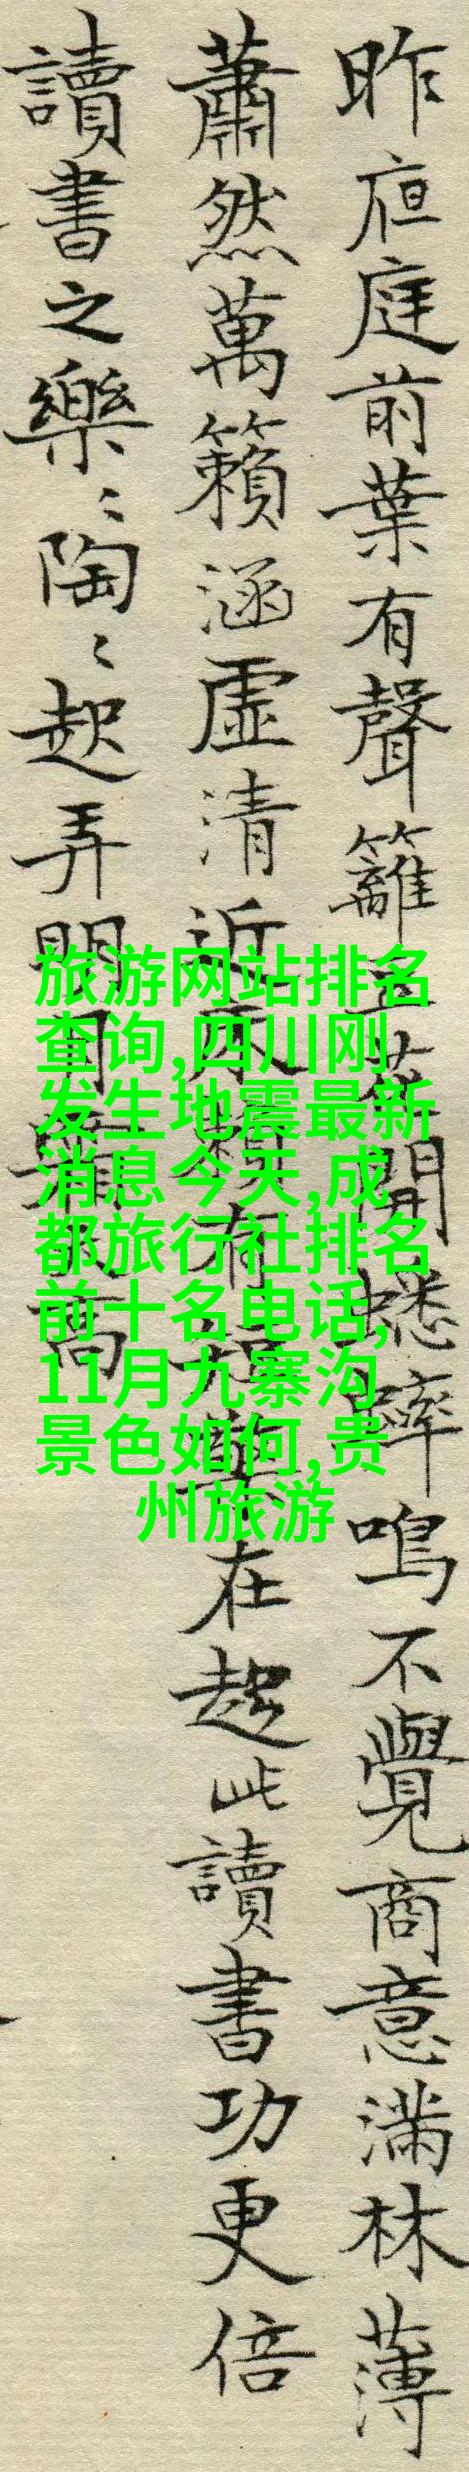 昨夜庭前葉有聲籬豆花開蟋蟀鳴不覺商意滿林薄
蕭然萬籟涵虛清近床賴有短檠在趁此讀書功更倍
讀書之樂〻陶〻起弄明月霜天高
旅游网站排名
查询,四川刚
发生地震最新
消息今天,成
都旅行社排名
前十名电话,
11月九寨沟
景色如何,贵
州旅游